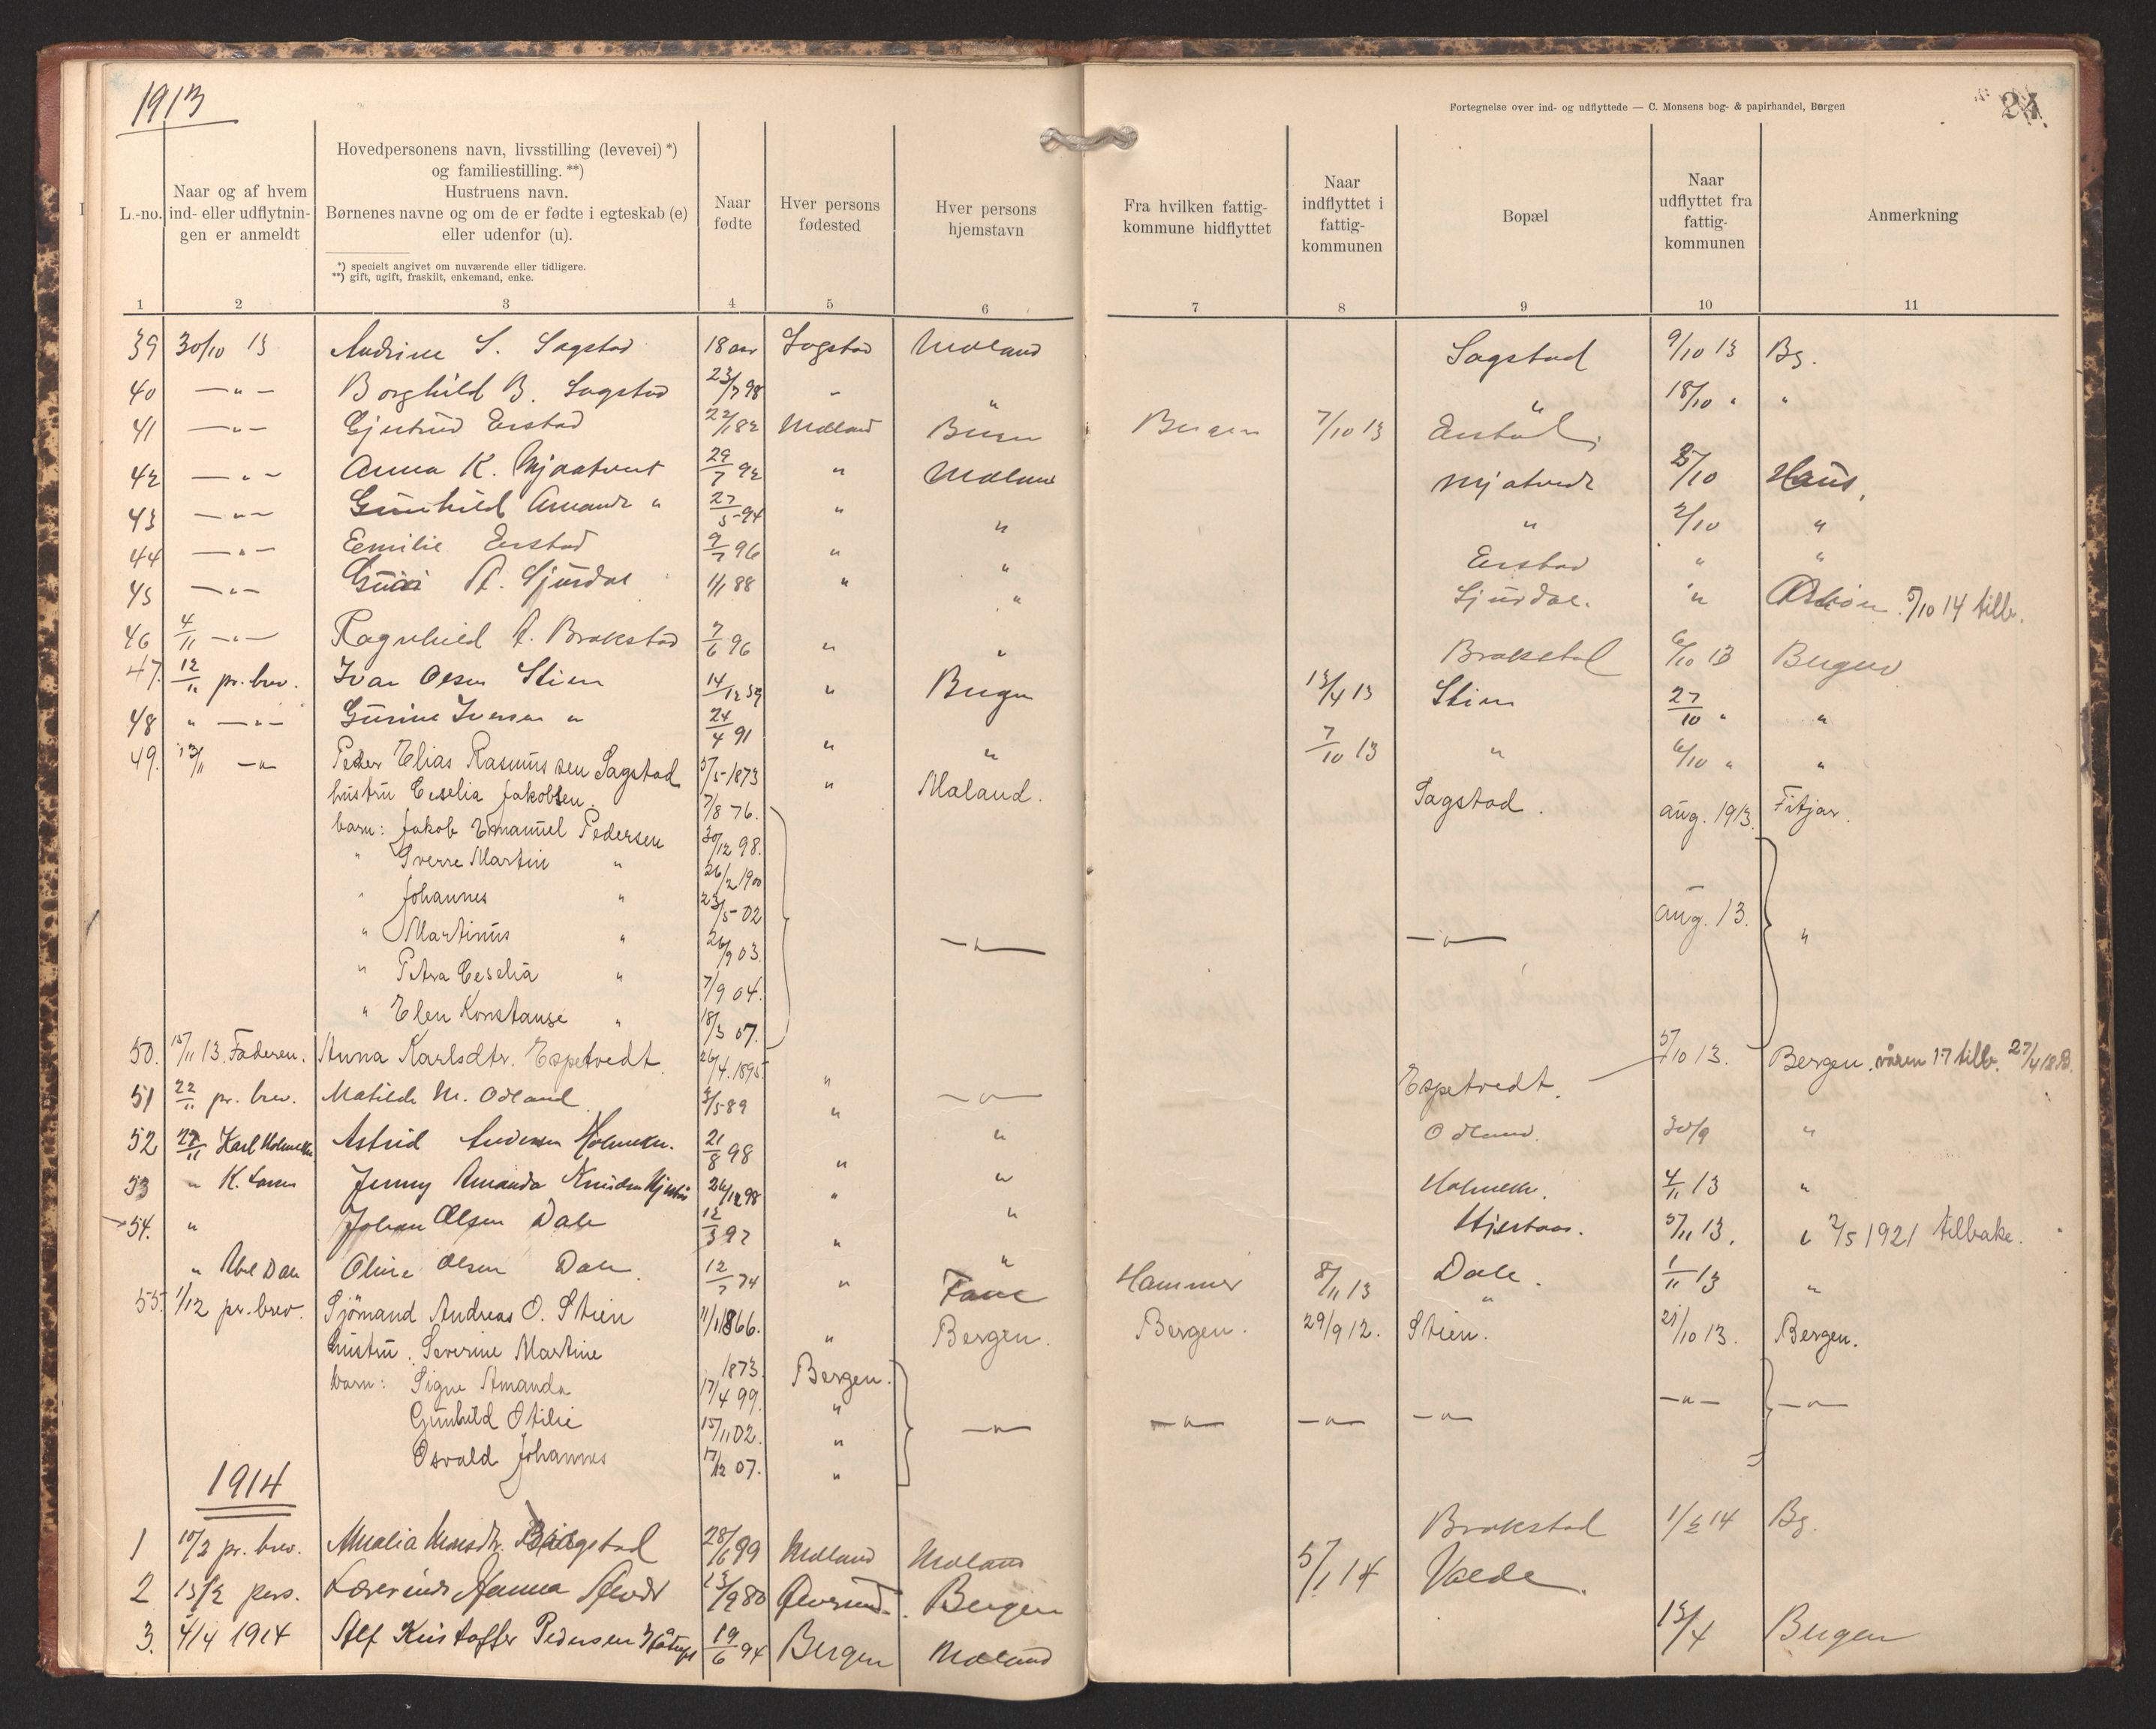 1913
Fortegnelse over ind- og udflyttede — C. Monsens bog- & papirhandel, Bergen
24.
L.-no.
Naar og af hvem ind- eller udflytningen er anmeldt
Hovedpersonens navn, livsstilling (levevei) *)
og familiestilling. **)
Hustruens navn.
Børnenes navne og om de er fødte i egteskab (e)
eller udenfor (u).
*) specielt angivet om nuværende eller tidligere.
**) gift, ugift, fraskilt, enkemand, enke.
Naar fødte
Hver persons fødested
Hver persons hjemstavn
Fra hvilken fattigkommune hidflyttet
Naar indflyttet i fattigkommunen
Bopæl
Naar udflyttet fra fattigkommunen
Anmerkning
1 2 3 4 5 6 7 8 9 10 11
39 30/10 13 Andrine S. Sagstad 18 aar Sagstad Mæland Sagstad 9/10 13 Bg.
40 — " — Borghild B. Sagstad 23/7 98 " " " 18/10 " "
41 — " — Gjertrud Eistad 22/1 82 Mæland Bergen Bergen 7/10 13 Eistad
42 — " — Anna K. Mjaatvedt 29/7 92 " Mæland Mjatvedt /10 Haus.
43 — " — Gunhild Amanda " 27/5-94 " " " 2/10 "
44 — " — Emilie Eistad 9/7 96 " " Eistad " "
45 — " — Guri A. Sjurdal 1/1 88 " " Sjurdal. " 5/10 14 tilb.
46 4/11 — " — Ragnhild A. Brakstad 7/6 96 " " Brakstad 6/10 13 Bergen
47. 12/11 pr. brev. Ivar Olsen Stien 14/12 39 " Bergen 13/4 13 Stien 27/10 " "
48 " — " — Gurine Iversen " 24/4 91 " " 7/10 13 " 6/10 " "
49. 13/11 — " Peder Elias Rasmussen Sagstad 5/5-1873 " Mæland. Sagstad. aug. 1913. Fitjar.
hustru Ceselia Jakobsen. 7/8 76.
barn: Jakob Emanuel Pedersen 30/12 98.
" Sverre Martin " 26/2 1900
" Johannes " 23/5-02 aug. 13.
" Martinus " 26/9 03. — " — — " — "
" Petra Ceselia " 7/9 04.
" Elen Konstanse " 18/3 07.
50. 15/11 13. Faderen. Anna Karlsdtr. Espetvedt. 26/4. 1895. " — " — Espetvedt. 5/10 13. Bergen. våren 17 tilb. 27/4 18 B.
51 22/11 pr. brev. Matilde M. Odland 3/5-89 " " Odland. 30/9 "
52 22/11 Karl Astrid Andersen 21/8 98 " " 4/11 13 "
53 " K. Jenny Amanda Knudsen 26/12 98 " " Hjertaas. 5/11 13. 2/5 1921 tilbake.
54. " Johan Olsen Dale 12/3 97 " " Dale. 1/11 13 "
" Abel Dale Oline Olsen Dale 12/7 74 " Fane Hammer 8/11 13 "
55. 1/12 pr. brev. Sjömand Andreas O. Stien 11/1 1866. " Bergen. Bergen. 29/9 12. Stien. 21/10 13. Bergen.
hustru. Severine Martine 1873. Bergen.
barn: Signe Amanda 17/4 99. " — " — — " —
Gunhild Otilie 15/11 02. " — " — — " — — " — — " —
Osvald Johannes 17/12 07. "
1914
1 10/2 pr. brev. Amalia Monsdtr. 28/6 99 Mæland Mæland Brakstad 1/2 14 Bg.
2 13/2 pers. Lærerinde Hanna 23/9 80 Bergen 5/1 14 Valde.
3. 4/4 1914 Alf Kristoffer Pedersen 19/6 94 Bergen Mæland 13/4 Bergen